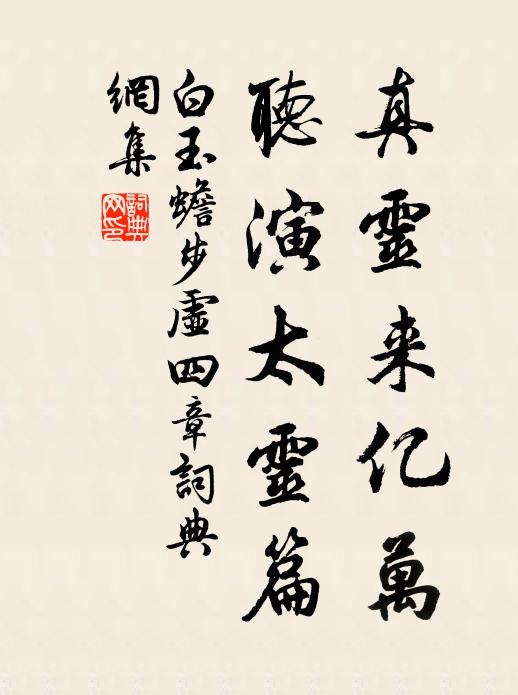 真靈来亿萬
聽演太靈篇
白玉蟾步虛四章詞典
網集
詞典网印